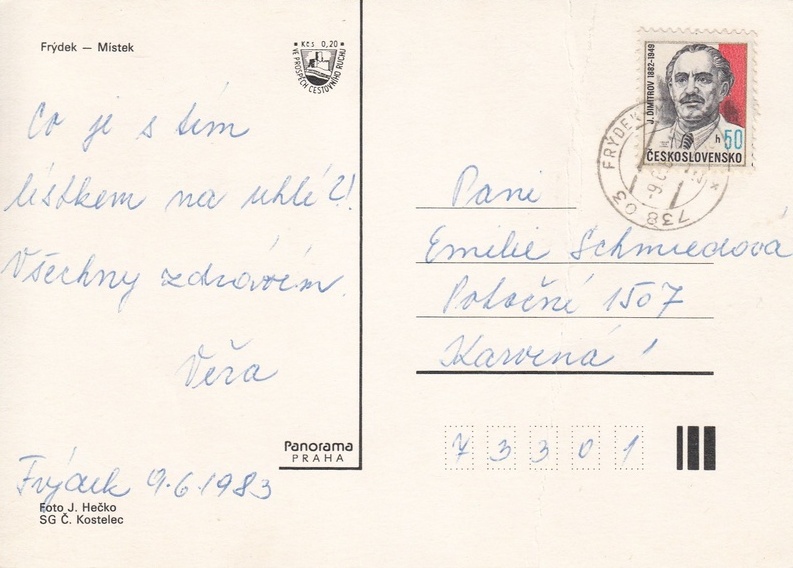 Frýdek — Místek
Kčs 0,20
VE PROSPĚCH CESTOVNÍHO RUCHU
Co je s tím
lístkem na uhlí?!
Všechny zdravím.
Věra
Frýdek 9.6.1983
Foto J. Hečko
SG Č. Kostelec
Panorama
PRAHA
J. DIMITROV 1882-1949
h 50
ČESKOSLOVENSKO
738 03 FRÝDEK
Paní
Emilie Schmiedová
Potoční 1507
Karviná 1
73301